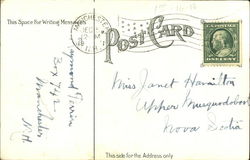 This Space for Writing Messages
POST CARD
MANCHESTER
DEC
N.H.
Miss Janet Hamilton
Upper Musquodoboit
Nova Scotia
Box 742
Manchester
N.H.
This side for the Address only